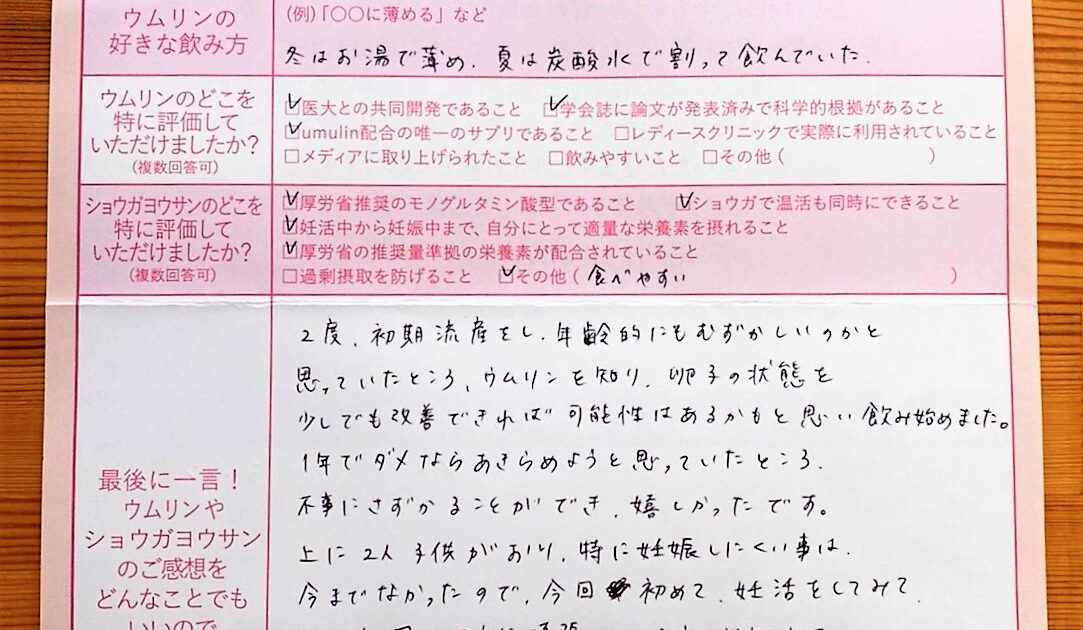 ウムリンの
好きな飲み方
(例)「〇〇に薄める」など
冬はお湯で薄め、夏は炭酸水で割って飲んでいた.
ウムリンのどこを
特に評価して
いただけましたか?
(複数回答可)
☑医大との共同開発であること ☑学会誌に論文が発表済みで科学的根拠があること
☑umulin配合の唯一のサプリであること □レディースクリニックで実際に利用されていること
□メディアに取り上げられたこと □飲みやすいこと □その他( )
ショウガヨウサンのどこを
特に評価して
いただけましたか?
(複数回答可)
☑厚労省推奨のモノグルタミン酸型であること ☑ショウガで温活も同時にできること
☑妊活中から妊娠中まで、自分にとって適量な栄養素を摂れること
☑厚労省の推奨量準拠の栄養素が配合されていること
□過剰摂取を防げること ☑その他(食べやすい )
最後に一言!
ウムリンや
ショウガヨウサン
のご感想を
どんなことでも
いいので
2度、初期流産をし、年齢的にもむずかしいのかと
思っていたところ、ウムリンを知り、卵子の状態を
少しでも改善できれば可能性はあるかもと思い飲み始めました。
1年でダメならあきらめようと思っていたところ、
不事にさずかることができ、嬉しかったです。
上に2人子供がおり、特に妊娠しにくい事は、
今までなかったので、今回初めて、妊活をしてみて、